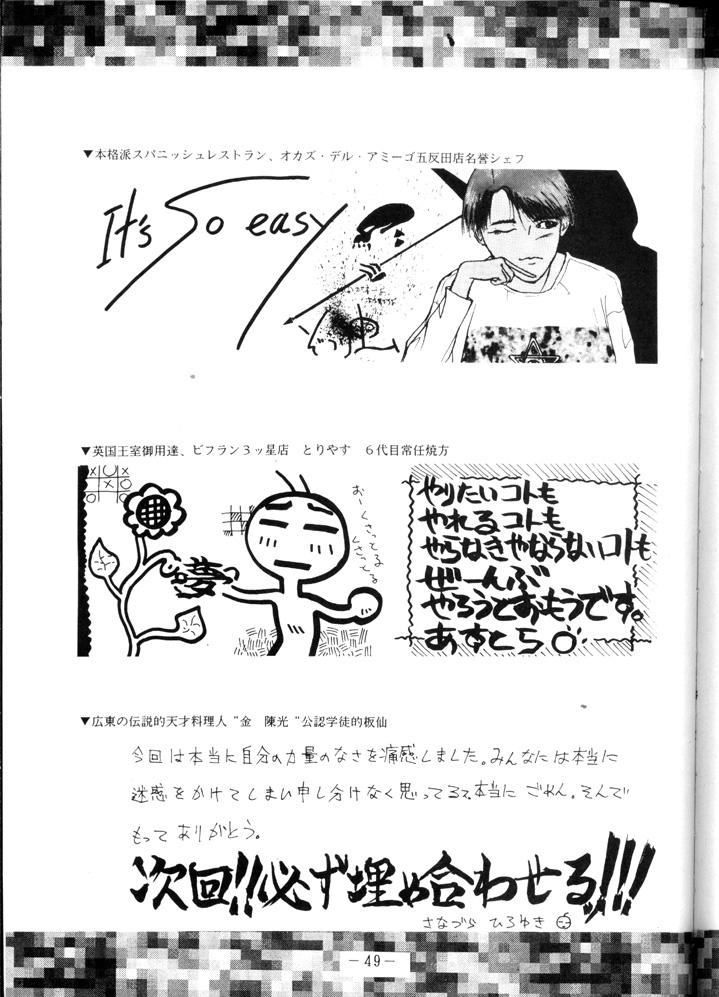 ▼本格派スパニッシュレストラン、オカズ・デル・アミーゴ五反田店名誉シェフ
It's So easy
▼英国王室御用達、ビフラン3ッ星店　とりやす　6代目常任焼方
×○×
××○
○　○
おーくさってる
くさってる
夢
やりたいコトも
やれるコトも
やらなきゃならないコトも
ぜーんぶ
やろうとおもうです。
あすとら
▼広東の伝説的天才料理人“金　陳光“公認学徒的板仙
今回は本当に自分の力量のなさを痛感しました。みんなには本当に
迷惑をかけてしまい申し分けなく思ってるで本当に ごめん。そんで
もって ありがとう。
次回!!必ず埋め合わせるッ!!!
さなづら ひろゆき
－49－